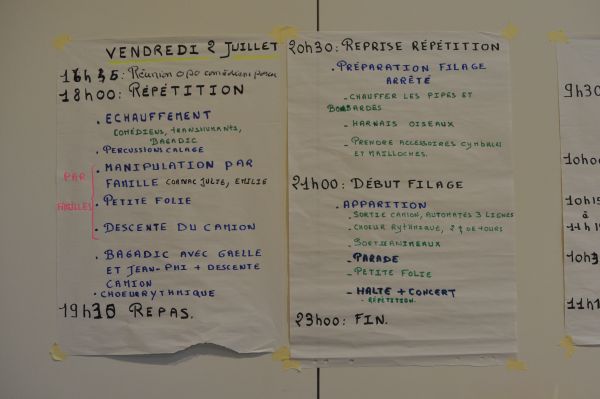 VENDREDI 2 JUILLET
16h45: Réunion opo comédiens
18h00: RÉPÉTITION
. ECHAUFFEMENT
COMÉDIENS, TRANSHUMANTS,
BAGADIC
. PERCUSSIONS CALAGE
. MANIPULATION PAR
FAMILLE CORNAC JULIE, EMILIE
PAR
FAMILLES
. PETITE FOLIE
. DESCENTE DU CAMION
. BAGADIC AVEC GAELLE
ET JEAN-PHI + DESCENTE
CAMION
. CHOEUR RYTHMIQUE
19h30 REPAS.
20h30: REPRISE RÉPÉTITION
. PRÉPARATION FILAGE
ARRÊTÉ
- CHAUFFER LES PIPES ET
BOMBARDES
- HARNAIS OISEAUX
- PRENDRE ACCESSOIRES CYMBALES
ET MAILLOCHES.
21h00: DÉBUT FILAGE
. APPARITION
- SORTIE CAMION, AUTOMATES 3 LIGNES
- CHOEUR RYTHMIQUE, 2 DE TOURS
- SORTIE ANIMEAUX
- PARADE
- PETITE FOLIE
- HALTE + CONCERT
- RÉPÉTITION.
23h00: FIN.
9h30
10h00
10h15
à
11h1
10h3
11h1